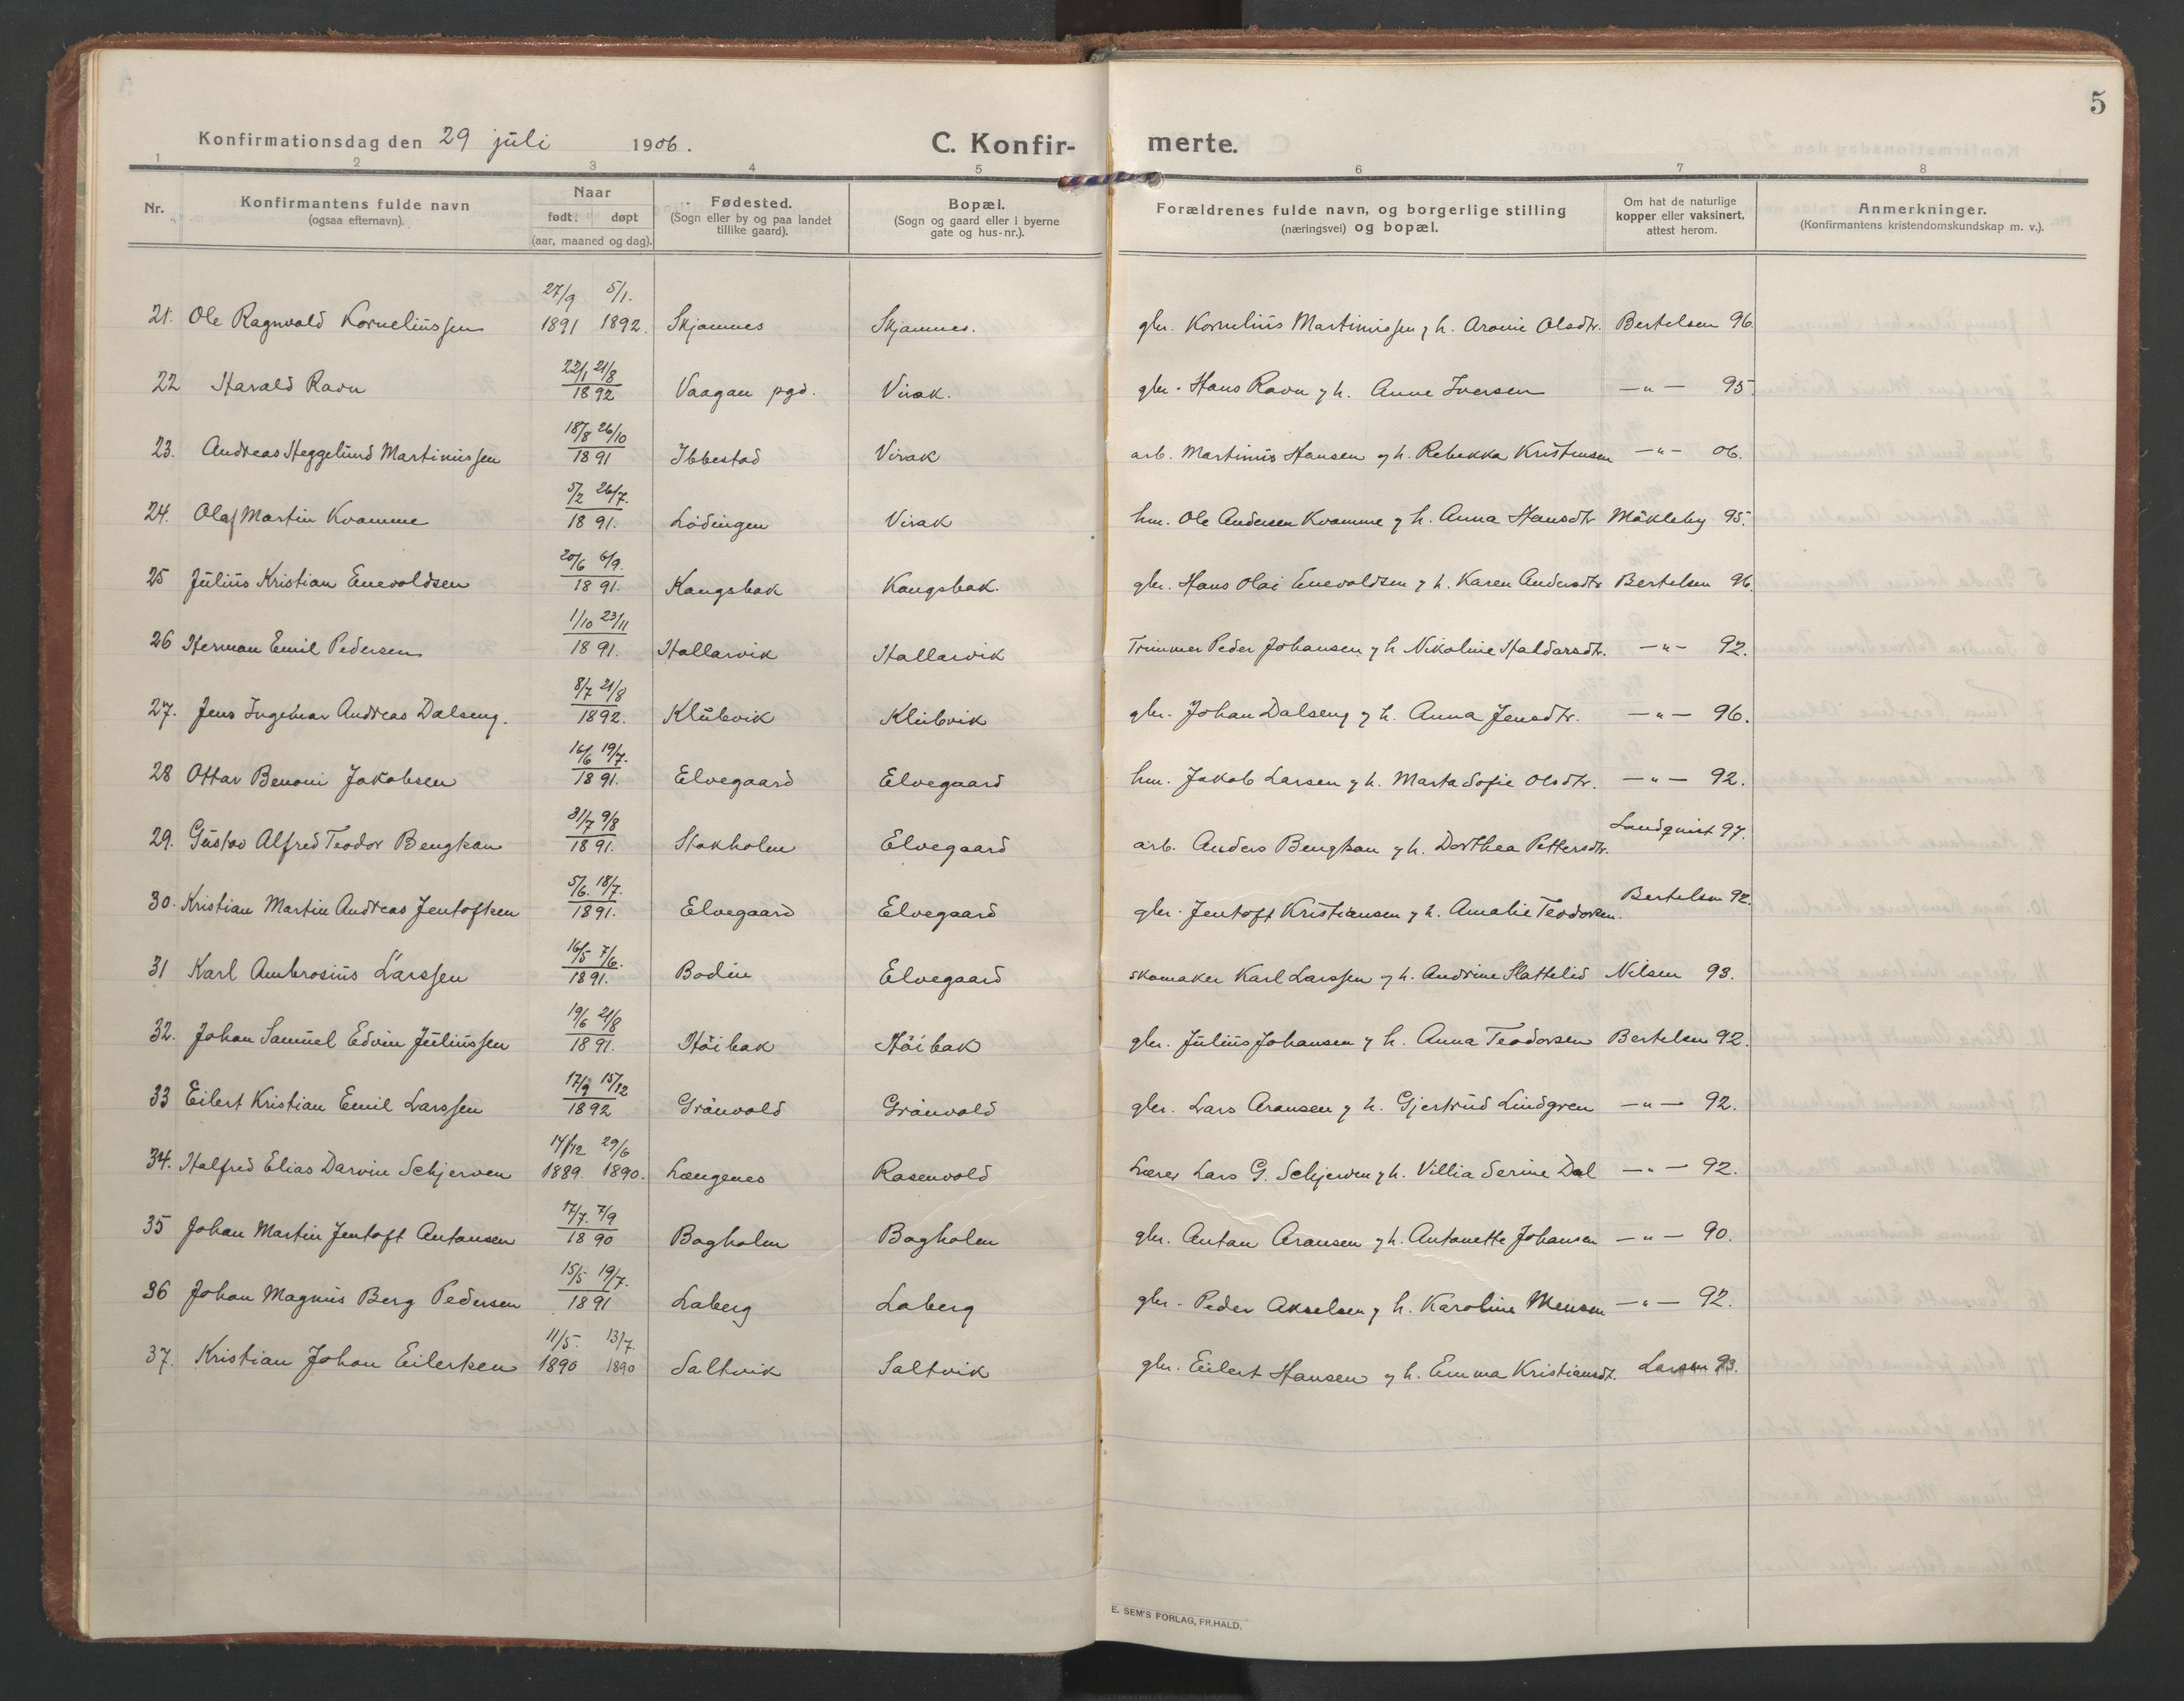 5
Konfirmationsdag den 29 juli 1906.
C. Konfir- merte.
1 2 3 4 5 6 7 8
Nr.
Konfirmantens fulde navn
(ogsaa efternavn).
Naar
født. døpt
(aar, maaned og dag).
Fødested.
(Sogn eller by og paa landet
tillike gaard).
Bopæl.
(Sogn og gaard eller i byerne
gate og hus-nr.).
Forældrenes fulde navn, og borgerlige stilling
(næringsvei) og bopæl.
Om hat de naturlige
kopper eller vaksinert,
attest herom.
Anmerkninger.
(Konfirmantens kristendomskundskap m. v.).
27/9 5/1.
21. Ole Ragnvald Korneliussen 1891 1892. Skjomnes Skjomnes. gbr. Kornelius Martinussen g h. Aronie Olsdtr. Bertelsen 96.
22/1 21/8
22 Harald Ravn 1892 Vaagan pgd. Virak. gbr. Hans Ravn g h. Anne Iversen —„— 95.
18/8 26/10
23. Andreas Heggelund Martinussen 1891 Ibbestad Virak arb. Martinus Hansen g h. Rebekka Kristensen —„— 06.
5/2 26/7.
24. Olaf Martin Kvamme 1891. Lödingen Virak hm. Ole Andersen Kvamme g h. Anna Hansdtr Mökleby 95.
20/6 6/9.
25 Julius Kristian Enevoldsen 1891. Kongsbak Kongsbak. gbr. Hans Olai Enevoldsen g h. Karen Andersdtr Bertelsen 96.
1/10 23/11
26 Herman Emil Pedersen 1891. Hallarvik Hallarvik Trimmer Peder Johansen g h Nikoline Haldorsdtr. —„— 92.
8/7 21/8
27. Jens Ingemar Andreas Dalseng. 1892. Klubvik Klubvik gbr. Johan Dalseng g h. Anna Jensdtr. —„— 96.
16/6 19/7.
28 Ottar Benoni Jakobsen 1891. Elvegaard Elvegaard hm. Jakob Larsen g h. Marta Sofie Olsdtr. —„— 92.
31/7 9/8
29. Gustav Alfred Teodor Bengtson 1891. Stokholm Elvegaard arb. Anders Bengtson g h. Dorthea Pettersdtr. Landquist 97.
5/6. 18/7.
30. Kristian Martin Andreas Jentoftsen 1891. Elvegaard Elvegaard gbr. Jentoft Kristiansen g h. Amalie Teodorsen. Bertelsen 92.
16/5 7/6.
31 Karl Ambrosius Larssen 1891. Bodin Elvegaard skomaker Karl Larssen g h. Andrine Slattelid Nilsen 93.
19/6 21/8
32. Johan Samuel Edvin Juliussen 1891. Höibak Höibak gbr. Julius Johansen g h. Anna Teodorsen Bertelsen 92.
17/9 15/12
33 Eilert Kristian Emil Larssen 1892 Grönvold Grönvold gbr. Lars Aronsen g h. Gjertrud Lindgren —„— 92.
14/12 29/6
34. Halfred Elias Darvin Schjerven 1889. 1890. Langenes Rosenvold Lærer Lars G. Schjerven g h. Villia Serine Dal —„— 92.
17/7. 7/9
35 Johan Martin Jentoft Antonsen 1890 Bogholm Bogholm gbr. Anton Aronsen g h. Antonette Johansen —„— 90.
15/5 19/7.
36 Johan Magnus Berg Pedersen 1891 Laberg Laberg gbr. Peder Akselsen g h. Karoline Mensen —„— 92.
11/5. 13/7.
37. Kristian Johan Eilertsen 1890 1890 Saltvik Saltvik gbr. Eilert Hansen g h. Emma Kristiansdt. Larsen 93.
E. SEM'S FORLAG, FR.HALD.